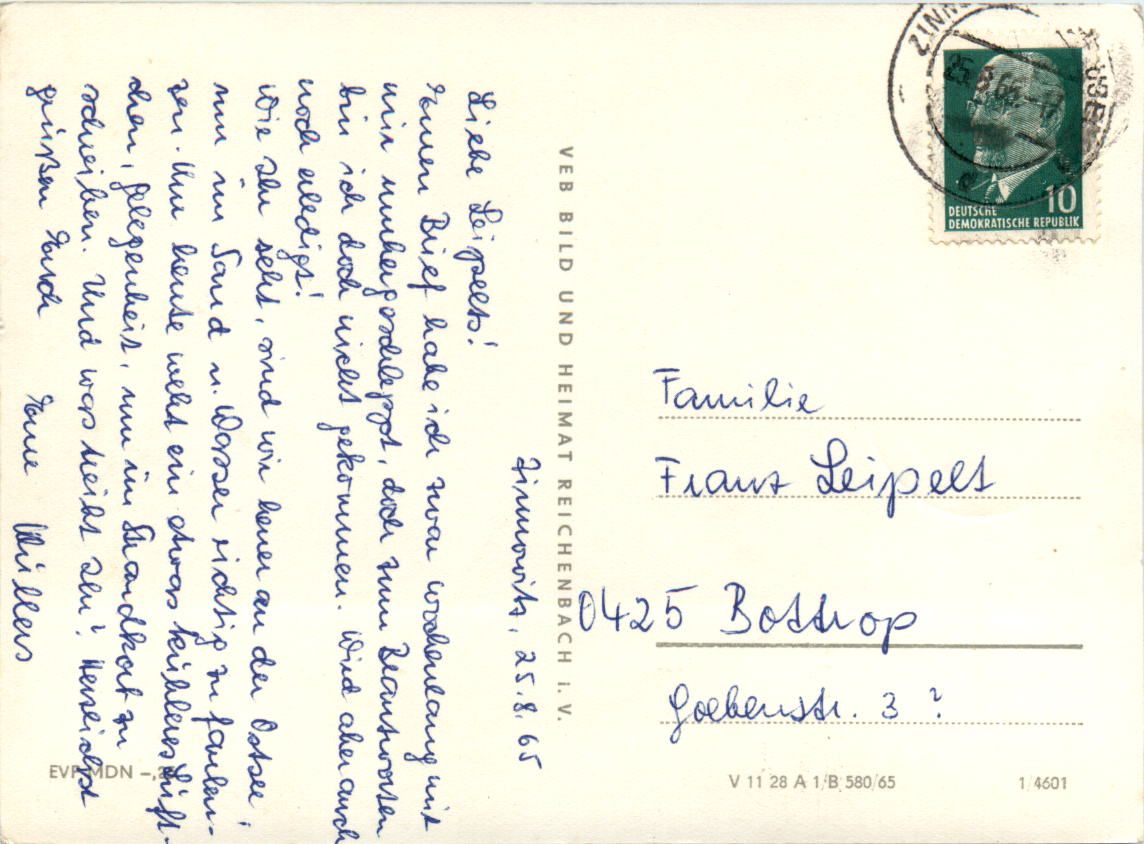 Zinnowitz, 25.8.65
Liebe Leipelts!
Euren Brief habe ich zwar wochenlang mit
mir umhergeschleppt, doch zum Beantworten
bin ich doch nicht gekommen. Wird aber auch
noch erledigt!
Wie Ihr seht, sind wir heuer an der Ostsee,
um im Sand u. Wasser richtig zu faulen-
zen. Nur heute weht ein etwas kühleres Lüft-
chen, Gelegenheit, um im Strandkorb zu
schreiben. Und was treibt Ihr? Herzlichst
grüßen Euch Eure Müllers
VEB BILD UND HEIMAT REICHENBACH i. V.
ZINN
25.8.65-17
DEUTSCHE
DEMOKRATISCHE REPUBLIK
10
Familie
Franz Leipelt
0425 Bottrop
Goebenstr. 3 ?
EVP MDN –,
V 11 28 A 1/B 580/65
1/4601